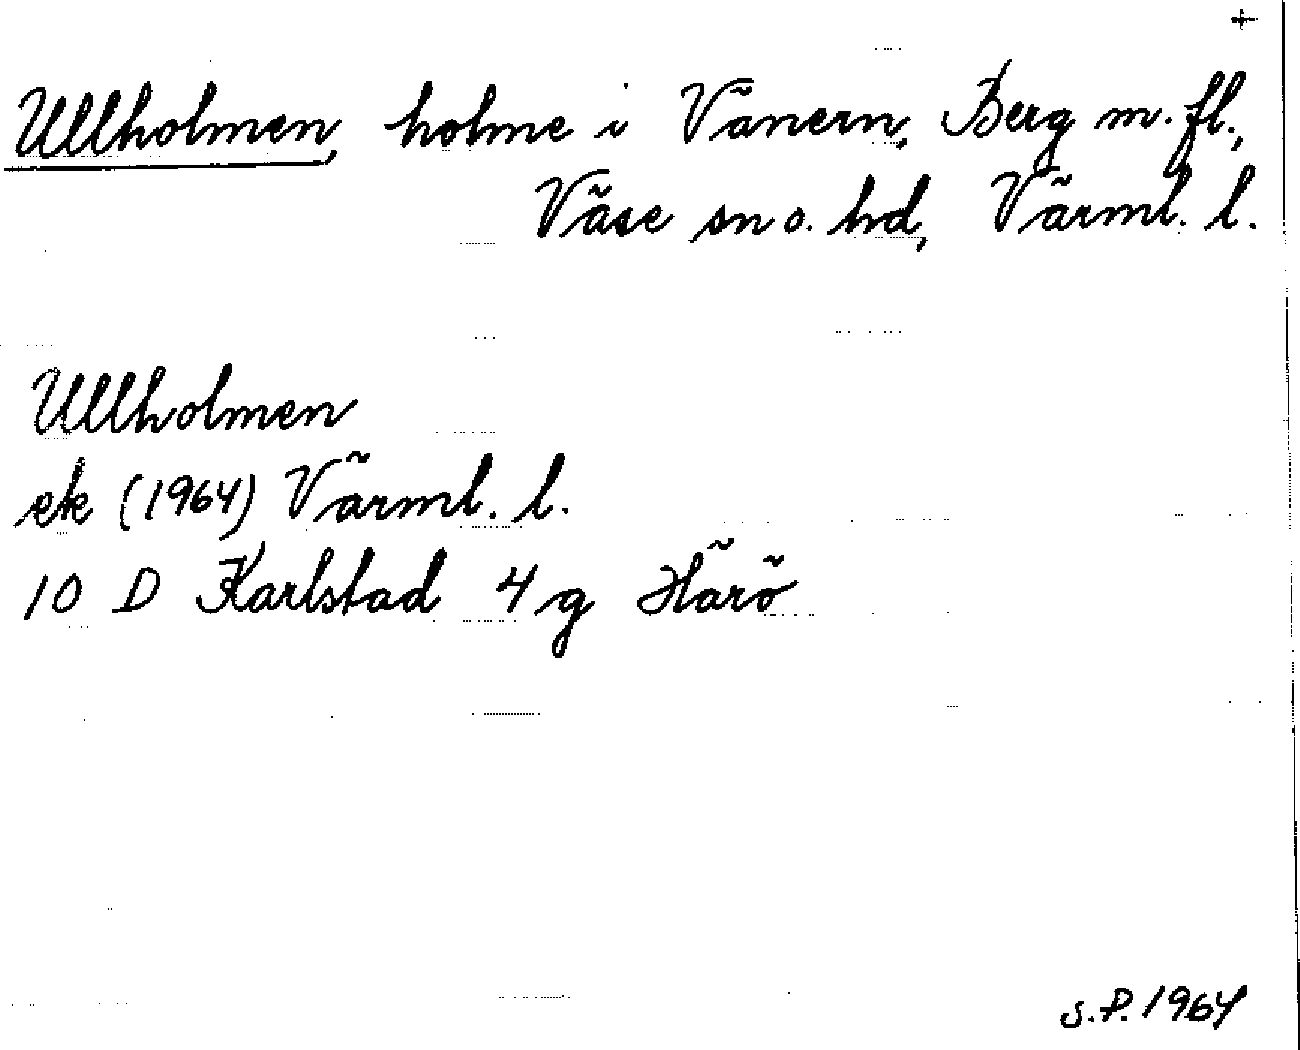 +
Ullholmen, holme i Vänern, Berg m. fl.,
Väse sn o. hd, Värml. l.
Ullholmen
ek (1964) Värml. l.
10 D Karlstad 4 g Härö
S.P. 1964